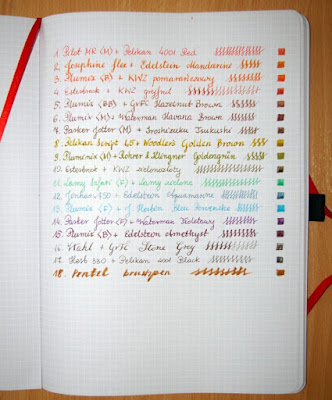 1. Pilot MR (M) + Pelikan 4001 Red
2. Josephine flex + Edelstein Mandarine
3. Plumix (B) + KWZ pomarańczowy
4. Esterbrook + KWZ grejfrut
5. Plumix (BB) + GvFC Hazelnut Brown
6. Plumix (M) + Waterman Havana Brown
7. Parker Jotter (M) + Iroshizuku Tsukushi
8. Pelikan Script 1,5 + Noodler's Golden Brown
9. (M) + Rohrer & Klingner Goldengrün
10. Esterbrook + KWZ zielonozłoty
11. Lamy Safari (F) + Lamy zielone
12. Jinhao 750 + Edelstein Aquamarine
13. Plumix (F) + J. Herbin Bleu Pervenche
14. Parker Jotter (F) + Waterman fioletowy
15. Plumix (B) + Edelstein Amethyst
16. Wahl + GvFC Stone Grey
17. Hero 330 + Pelikan 4001 Black
18. Pentel brushpen